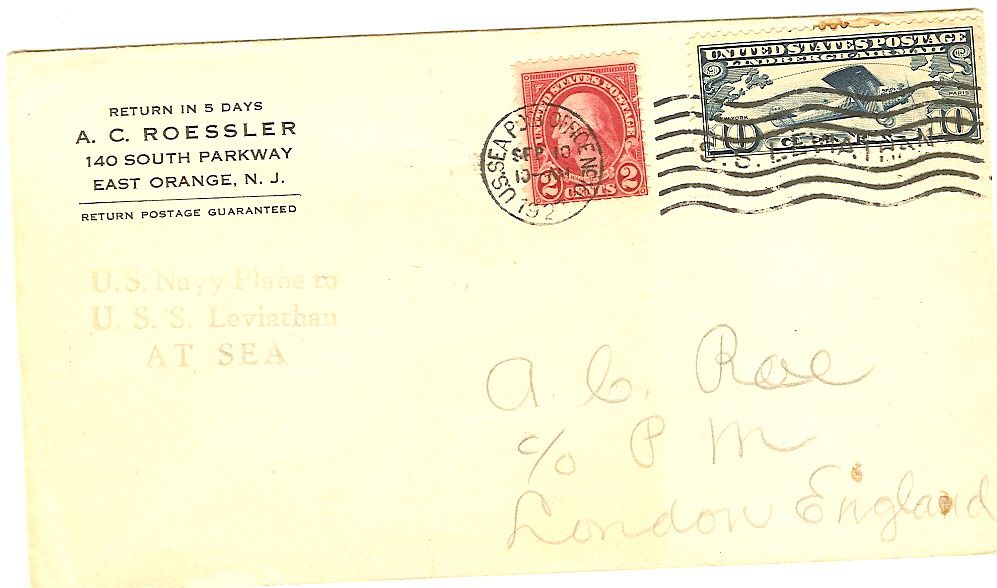 RETURN IN 5 DAYS
A. C. ROESSLER
140 SOUTH PARKWAY
EAST ORANGE, N. J.
RETURN POSTAGE GUARANTEED
UNITED STATES POSTAGE
2 CENTS 2
U.S. SEA POST OFFICE No.
SEP 10
192
UNITED STATES POSTAGE
LINDBERGH AIR MAIL
PARIS
10 10
S.S. LEVIATHAN
U.S. Navy Plane to
U. S. S. Leviathan
AT SEA
A. C. Roe
c/o P M
London England